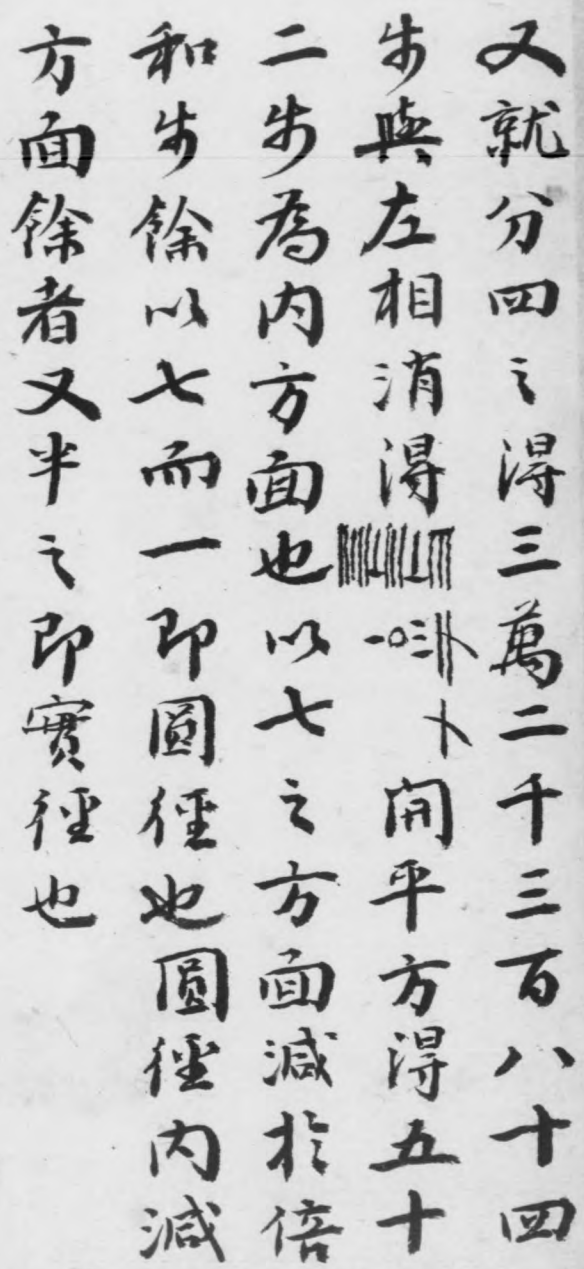 又就分四之得三萬二千三百八十四
步與左相消得開平方得五十
二步為內方面也以七之方面減於倍
和步餘以七而一即圓徑也圓徑內減
方面餘者又半之即實徑也